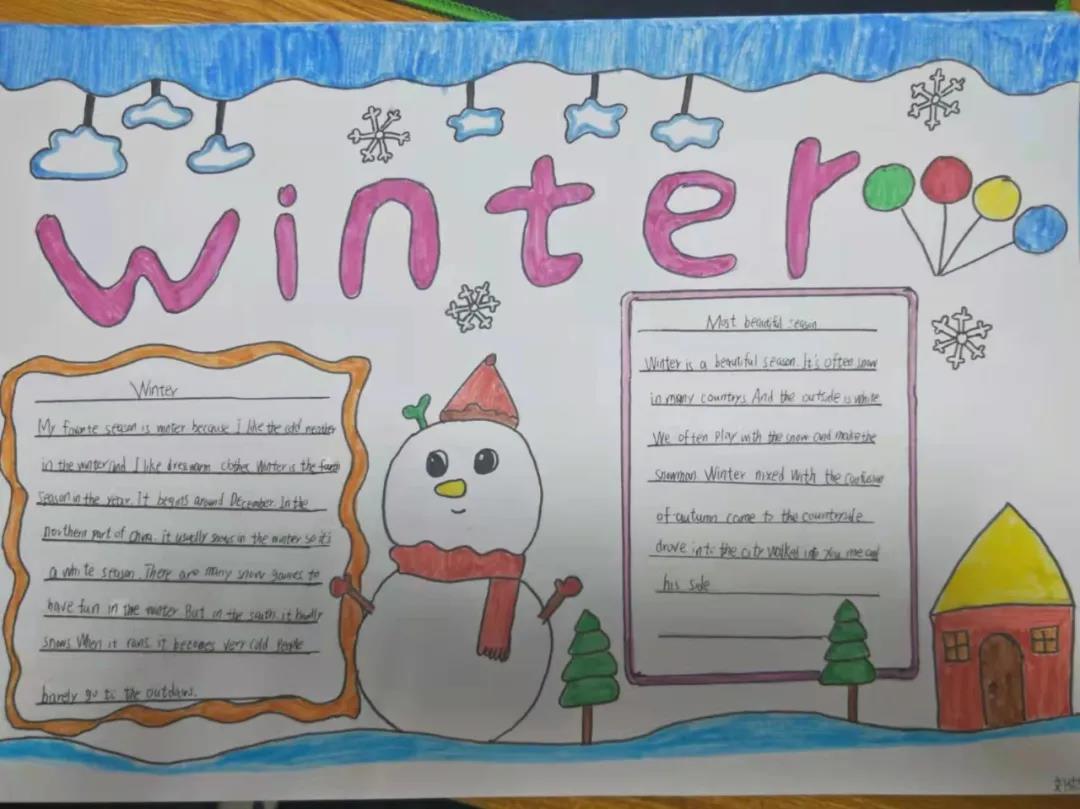 winter
Winter
My favorite season is winter because I like the cold weather
in the winter and I like dress warm clothes. Winter is the
season in the year. It begins around December. In the
northern part of China, it usually snows in the winter so it's
a white season. There are many snow games to
have fun in the winter But in the south, it hardly
snows When it rains, it becomes very cold People
barely go to the outdoors.
Most beautiful season
Winter is a beautiful season. It's often snow
in many countrys. And the outside is white
We often play with the snow and make the
snowman Winter nixed with the confusion
of autumn came to the countryside
drove into the city walked into you me and
his side